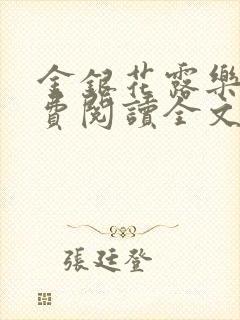 金銀花露樂
費閱讀全文
張廷登